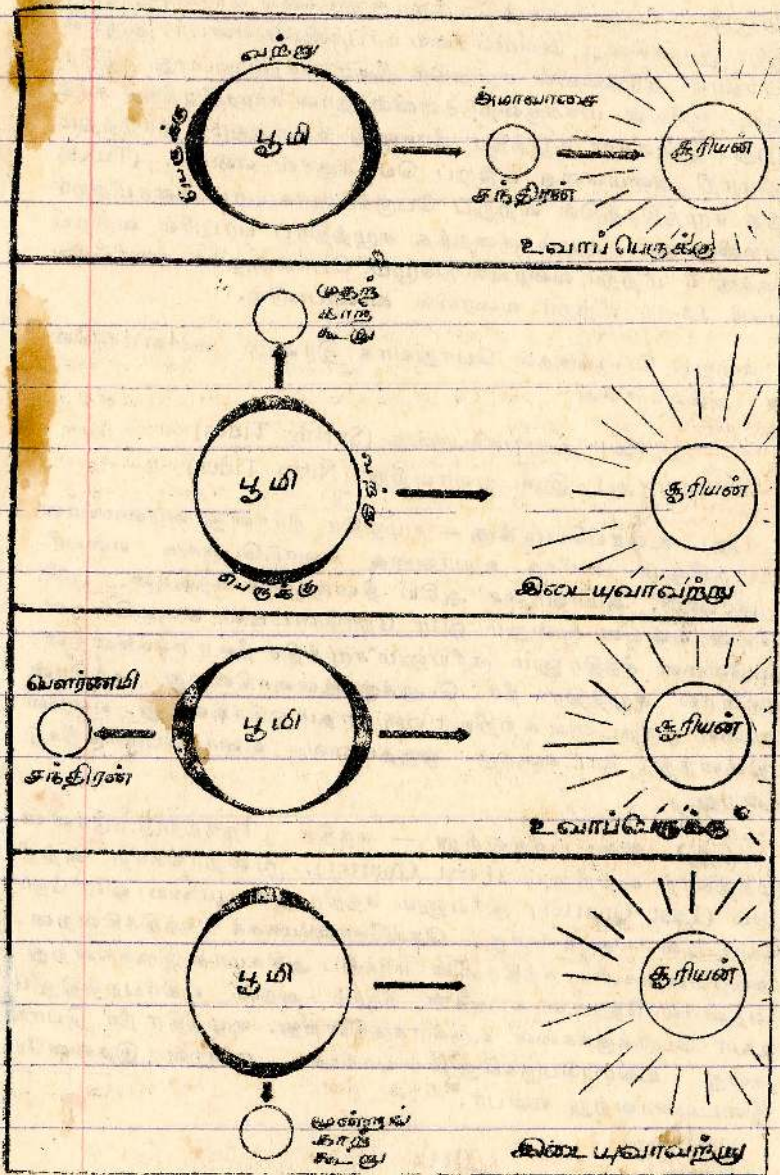 வற்று
பெருக்கு
பூமி
அமாவாசை
சந்திரன்
சூரியன்
உவாப் பெருக்கு
முதற்
காற்
கூறு
பூமி
வற்று
பெருக்கு
சூரியன்
இடையுவாவற்று
பௌர்ணமி
சந்திரன்
பூமி
சூரியன்
உவாப்பெருக்கு
பூமி
சூரியன்
மூன்றாம்
காற்
கூறு
இடையுவாவற்று